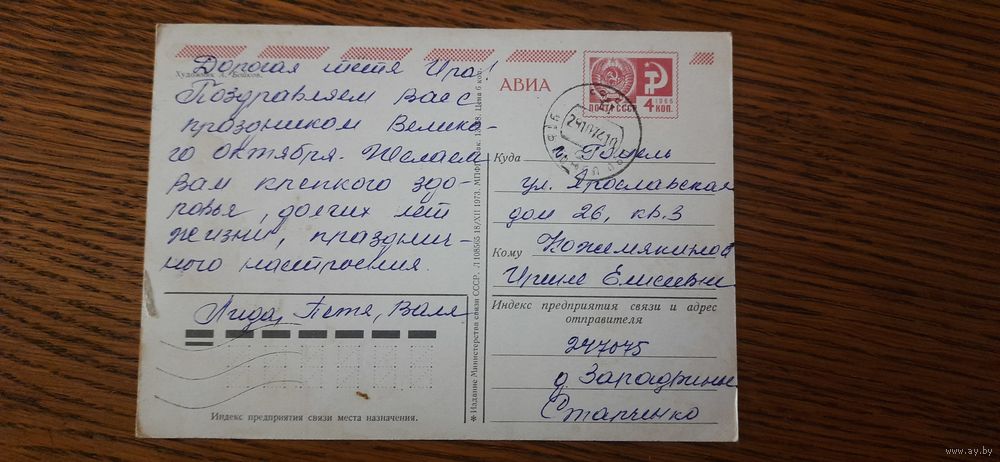 Художник А. Бойков.
Дорогая тетя Ира!
Поздравляем Вас с
праздником Велико-
го октября. Желаем
Вам крепкого здо-
ровья, долгих лет
жизни, празднич-
ного настроения.
Лида, Петя, Валя
Индекс предприятия связи места назначения.
* Издание Министерства связи СССР. Л 108565 18/XII 1973. МПФГ. Цена 6 коп.
АВИА
1966
ПОЧТА СССР 4 КОП.
Куда г. Гомель
ул. Ярославская
дом 26, кв. 3
Кому Кожемякиной
Ирине Елисеевне
Индекс предприятия связи и адрес
отправителя
247045
д.
Старченко
www.ay.by